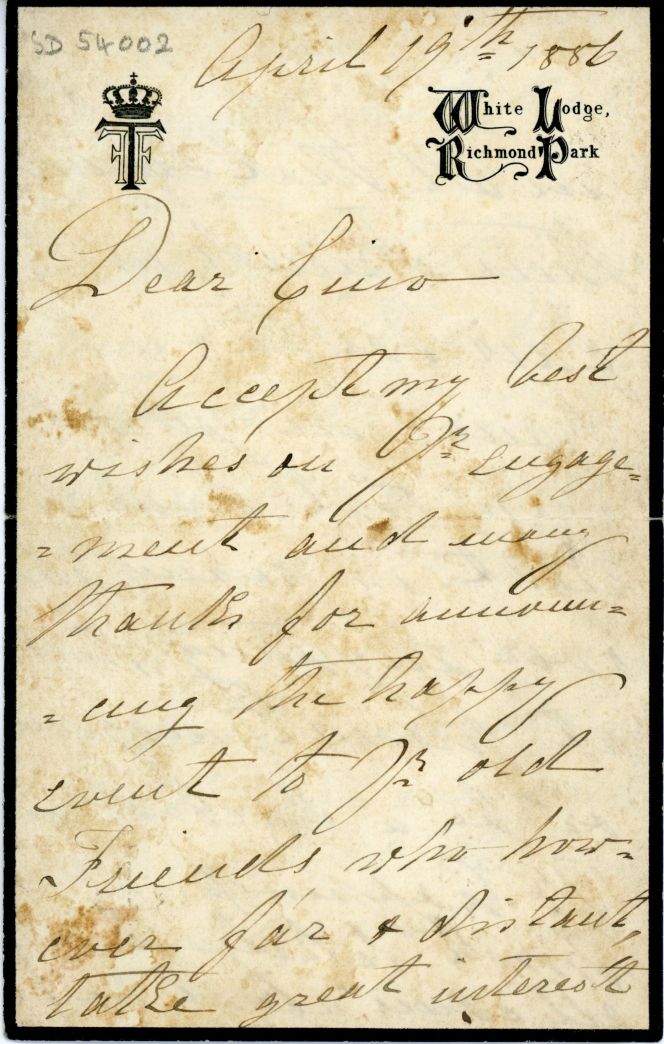 SD 54002
April 19th 1886
White Lodge,
Richmond Park
Dear
Accept my best
wishes on Yr. engage=
=ment and many
thanks for announ=
=cing the happy
event to Yr. old
Friends who how=
ever far & distant,
take great interest